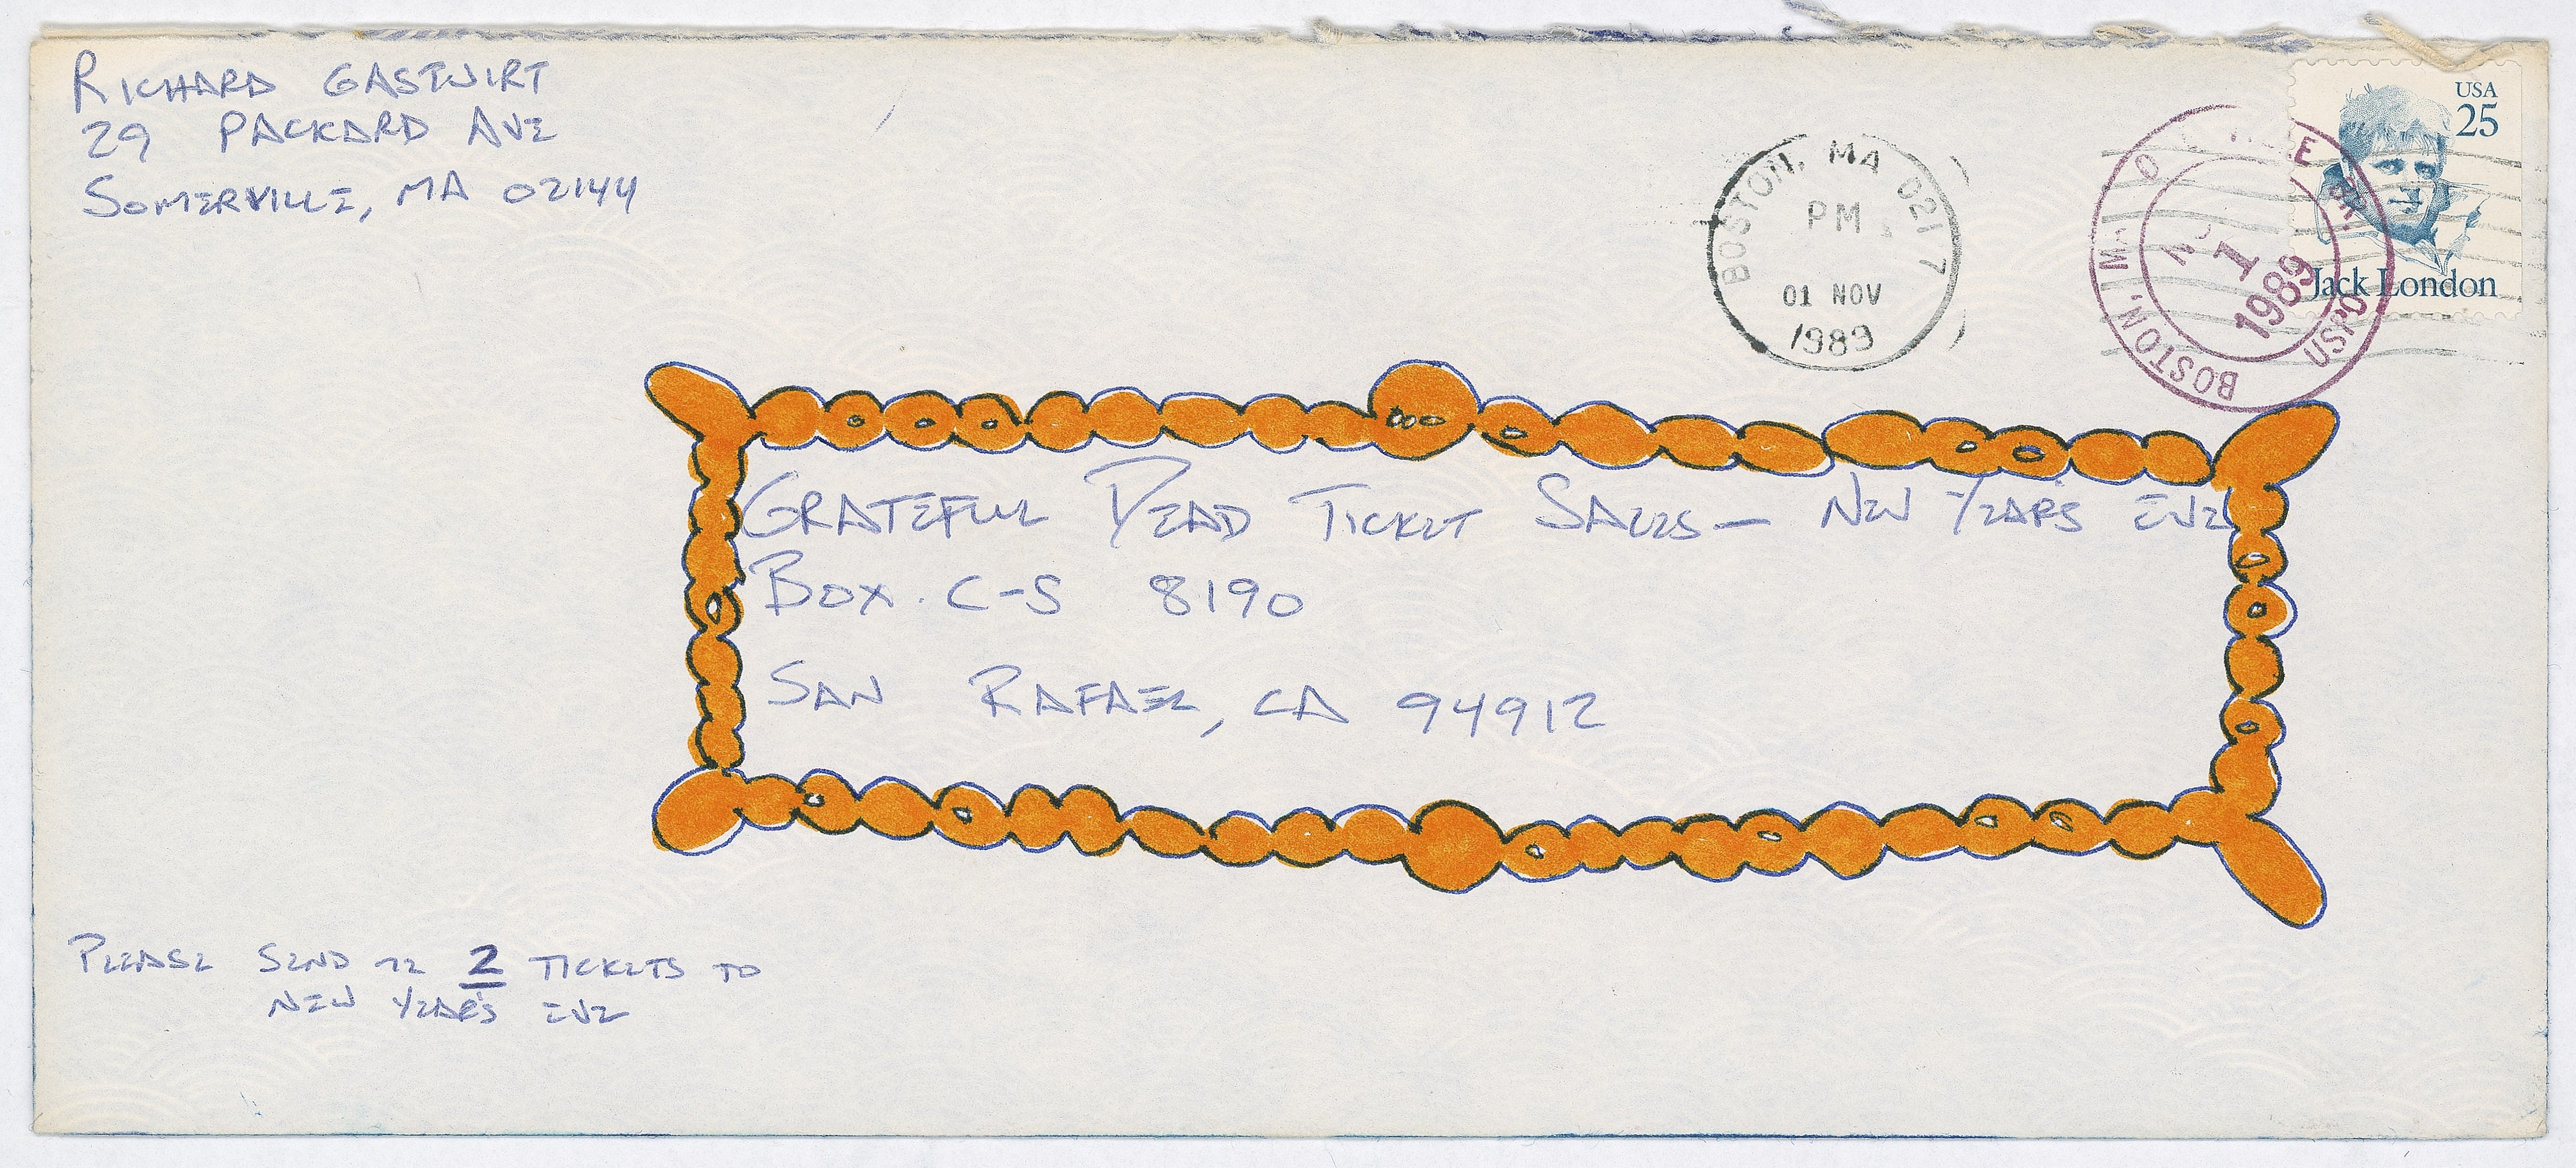 RICHARD GASTWIRT
29 PACKARD AVE
SOMERVILLE, MA 02144
BOSTON, MA 0217
PM
01 NOV
1989
BOSTON, MA
USPO
1
1989
USA
25
Jack London
GRATEFUL DEAD TICKET SALES — NEW YEAR'S EVE
BOX C-S 8190
SAN RAFAEL, CA 94912
PLEASE SEND ME 2 TICKETS TO
NEW YEAR'S EVE